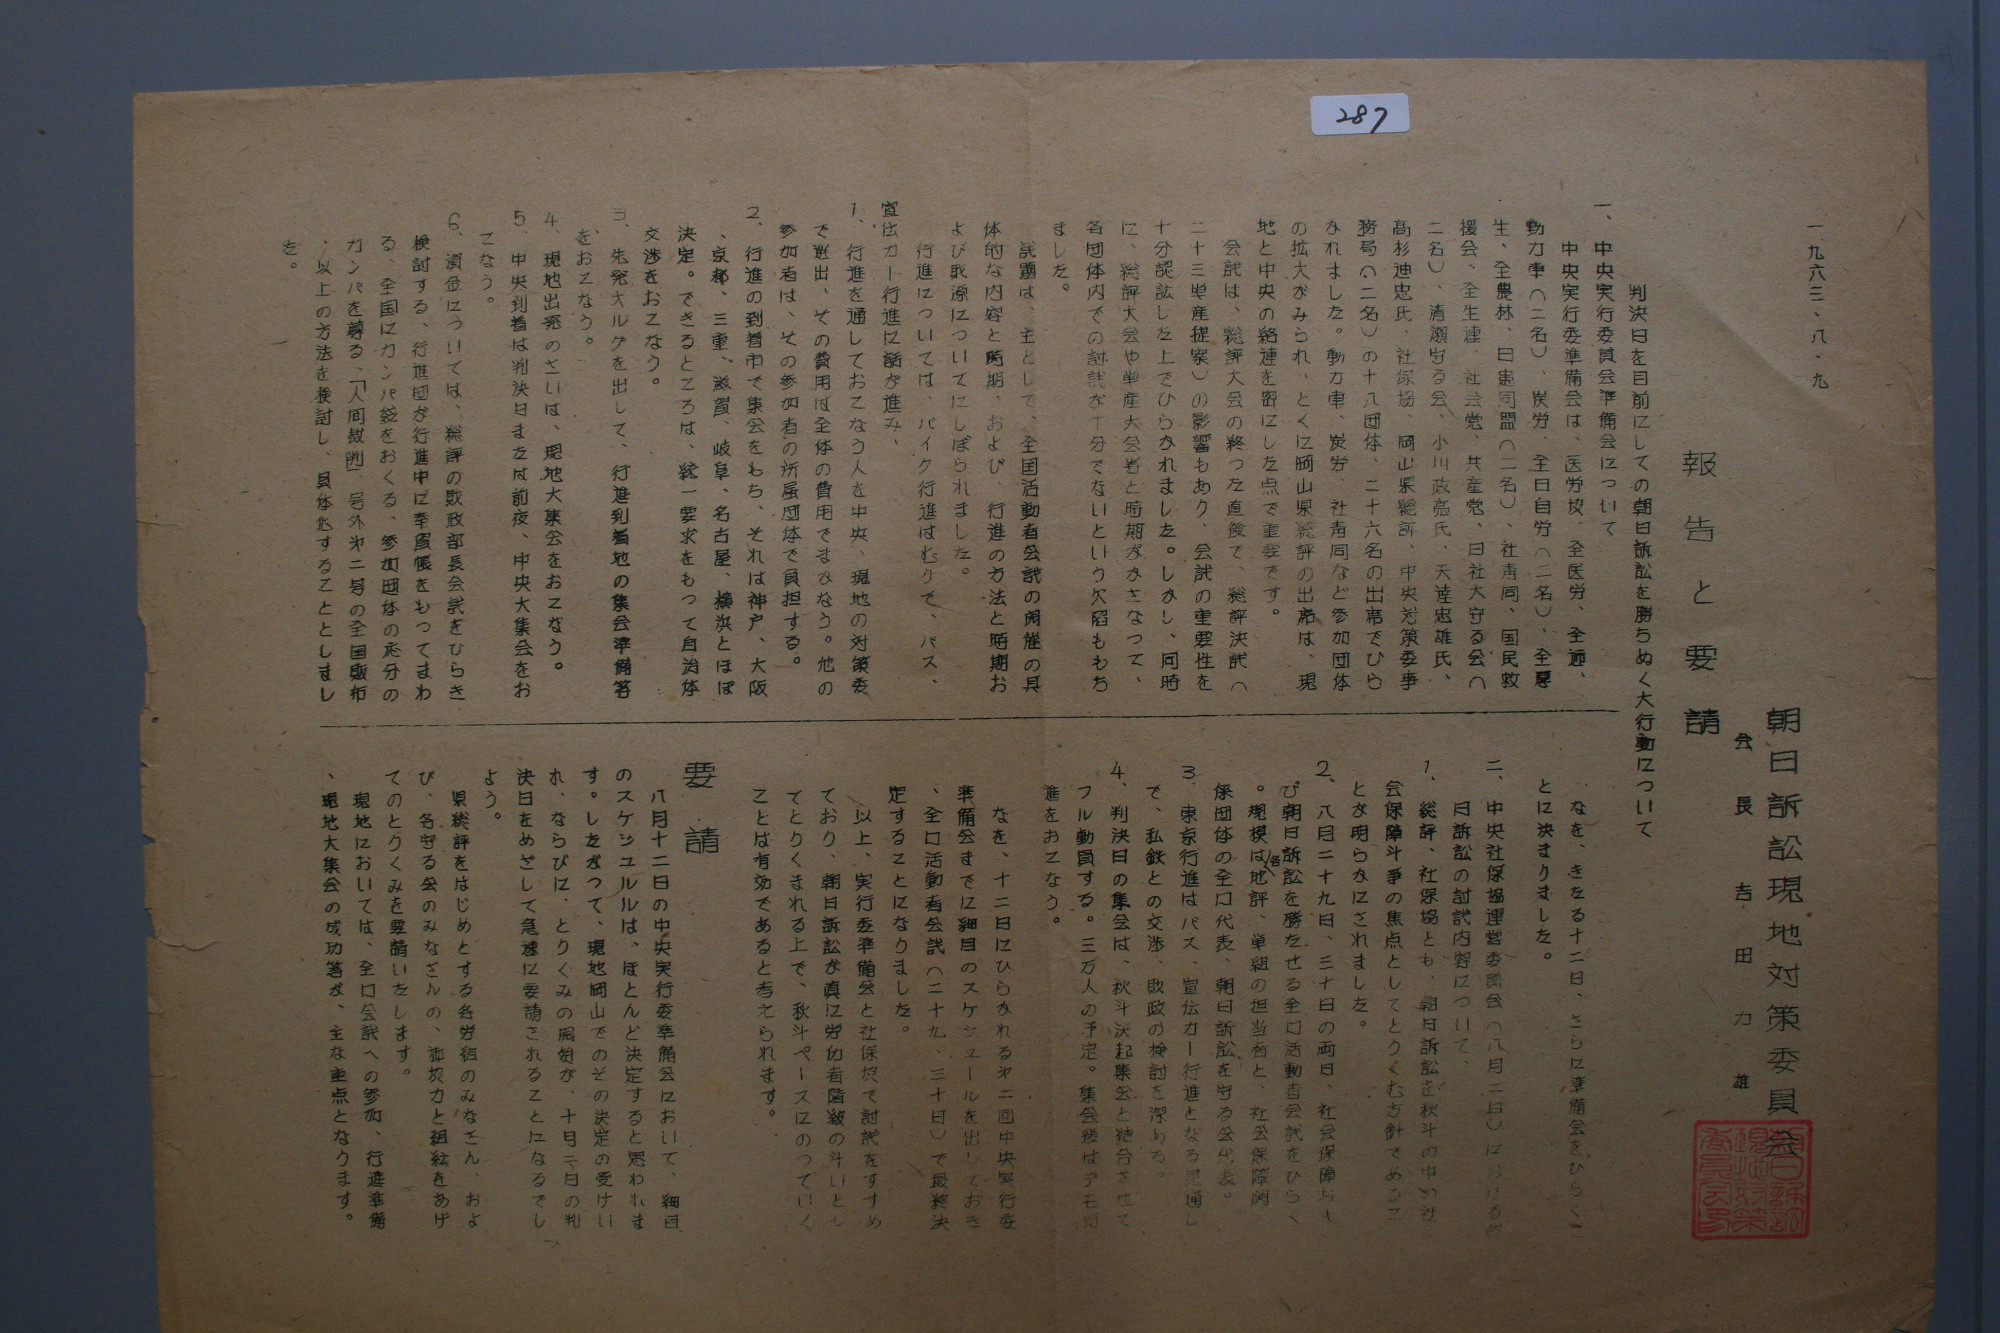 287
一九六三、八、九
朝日訴訟現地対策委員会
会長 吉田力雄
報告と要請
判決日を目前にしての朝日訴訟を勝ちぬく大行動について
一、中央実行委員会準備会について
中央実行委準備会は、医労協、全医労、全逓、
動力車(二名)、炭労、全日自労(二名)、全厚
生、全農林、日患同盟(二名)、社青同、国民救
援会、全生連、社会党、共産党、日社大守る会(
二名)、清瀬守る会、小川政亮氏、天達忠雄氏、
高杉迪忠氏、社保協、岡山県総評、中央対策委事
務局(二名)の十八団体、二十六名の出席でひら
かれました。動力車、炭労、社青同など参加団体
の拡大がみられ、とくに岡山県総評の出席は、現
地と中央の絡連を密にした点で重要です。
会議は、総評大会の終った直後で、総評決議(
二十三単産提案)の影響もあり、会議の重要性を
十分認訟した上でひらかれました。しかし、同時
に、総評大会や単産大会者と時期がかさなって、
各団体内での討議が十分でないという欠陥ももち
ました。
議題は、主として、全国活動者会議の開催の具
体的な内容と時期、および、行進の方法と時期お
よび財源についてにしぼられました。
行進については、バイク行進はむりで、バス、
宣伝カー行進に話が進み、
1、行進を通しておこなう人を中央、現地の対策委
で選出、その費用は全体の費用でまかなう。他の
参加者は、その参加者の所属団体で負担する。
2、行進の到着市で集会をもち、それは神戸、大阪
、京都、三重、滋賀、岐阜、名古屋、横浜とほぼ
決定。できるところは、統一要求をもって自治体
交渉をおこなう。
3、先発オルグを出して、行進到着地の集会準備等
をおこなう。
4、現地出発のさいは、現地大集会をおこなう。
5、中央到着は判決日または前夜、中央大集会をお
こなう。
6、資金については、総評の財政部長会議をひらき
検討する、行進団が行進中に奉賀帳をもってまわ
る、全国にカンパ袋をおくる、参加団体の応分の
カンパを募る、「人間裁判」号外第二号の全国販布
、以上の方法を検討し、具体化することとしまし
た。
なを、きたる十二日、さらに準備会をひらくこ
とに決まりました。
二、中央社保協運営委員会(八月二日)における朝
日訴訟の討議内容について、
1、総評、社保協とも、朝日訴訟を秋斗の中の社
会保障斗争の焦点としてとりくむ方針であるこ
とが明らかにされました。
2、八月二十九日、三十日の両日、社会保障およ
び朝日訴訟を勝たせる全口活動者会議をひらく
。規模は各地評、単組の担当者と、社会保障関
係団体の全口代表、朝日訴訟を守る会代表。
3、東京行進はバス、宣伝カー行進となる見通し
で、私鉄との交渉、財政の検討を深める。
4、判決日の集会は、秋斗決起集会と結合させて
フル動員する。三万人の予定。集会後はデモ行
進をおこなう。
なを、十二日にひらかれる第二回中央実行委
準備会までに細目のスケジュールを出しておき
、全口活動者会議(二十九、三十日)で最終決
定することになりました。
以上、実行委準備会と社保協で討議をすすめ
ており、朝日訴訟が真に労仂者階級の斗いとし
てとりくまれる上で、秋斗ペースにのっていく
ことは有効であると考えられます。
要請
八月十二日の中央実行委準備会において、細目
のスケジュルルは、ほとんど決定すると思われま
す。したがって、現地岡山でのその決定の受けい
れ、ならびに、とりくみの開始が、十月二日の判
決日をめざして急速に要請されることになるでし
よう。
県総評をはじめとする各労組のみなさん、およ
び、各守る会のみなさんの、御協力と組絵をあげ
てのとりくみを要請いたします。
現地においては、全口会議への参加、行進準備
、現地大集会の成功等が、主な重点となります。
朝日訴訟現地対策委員会印